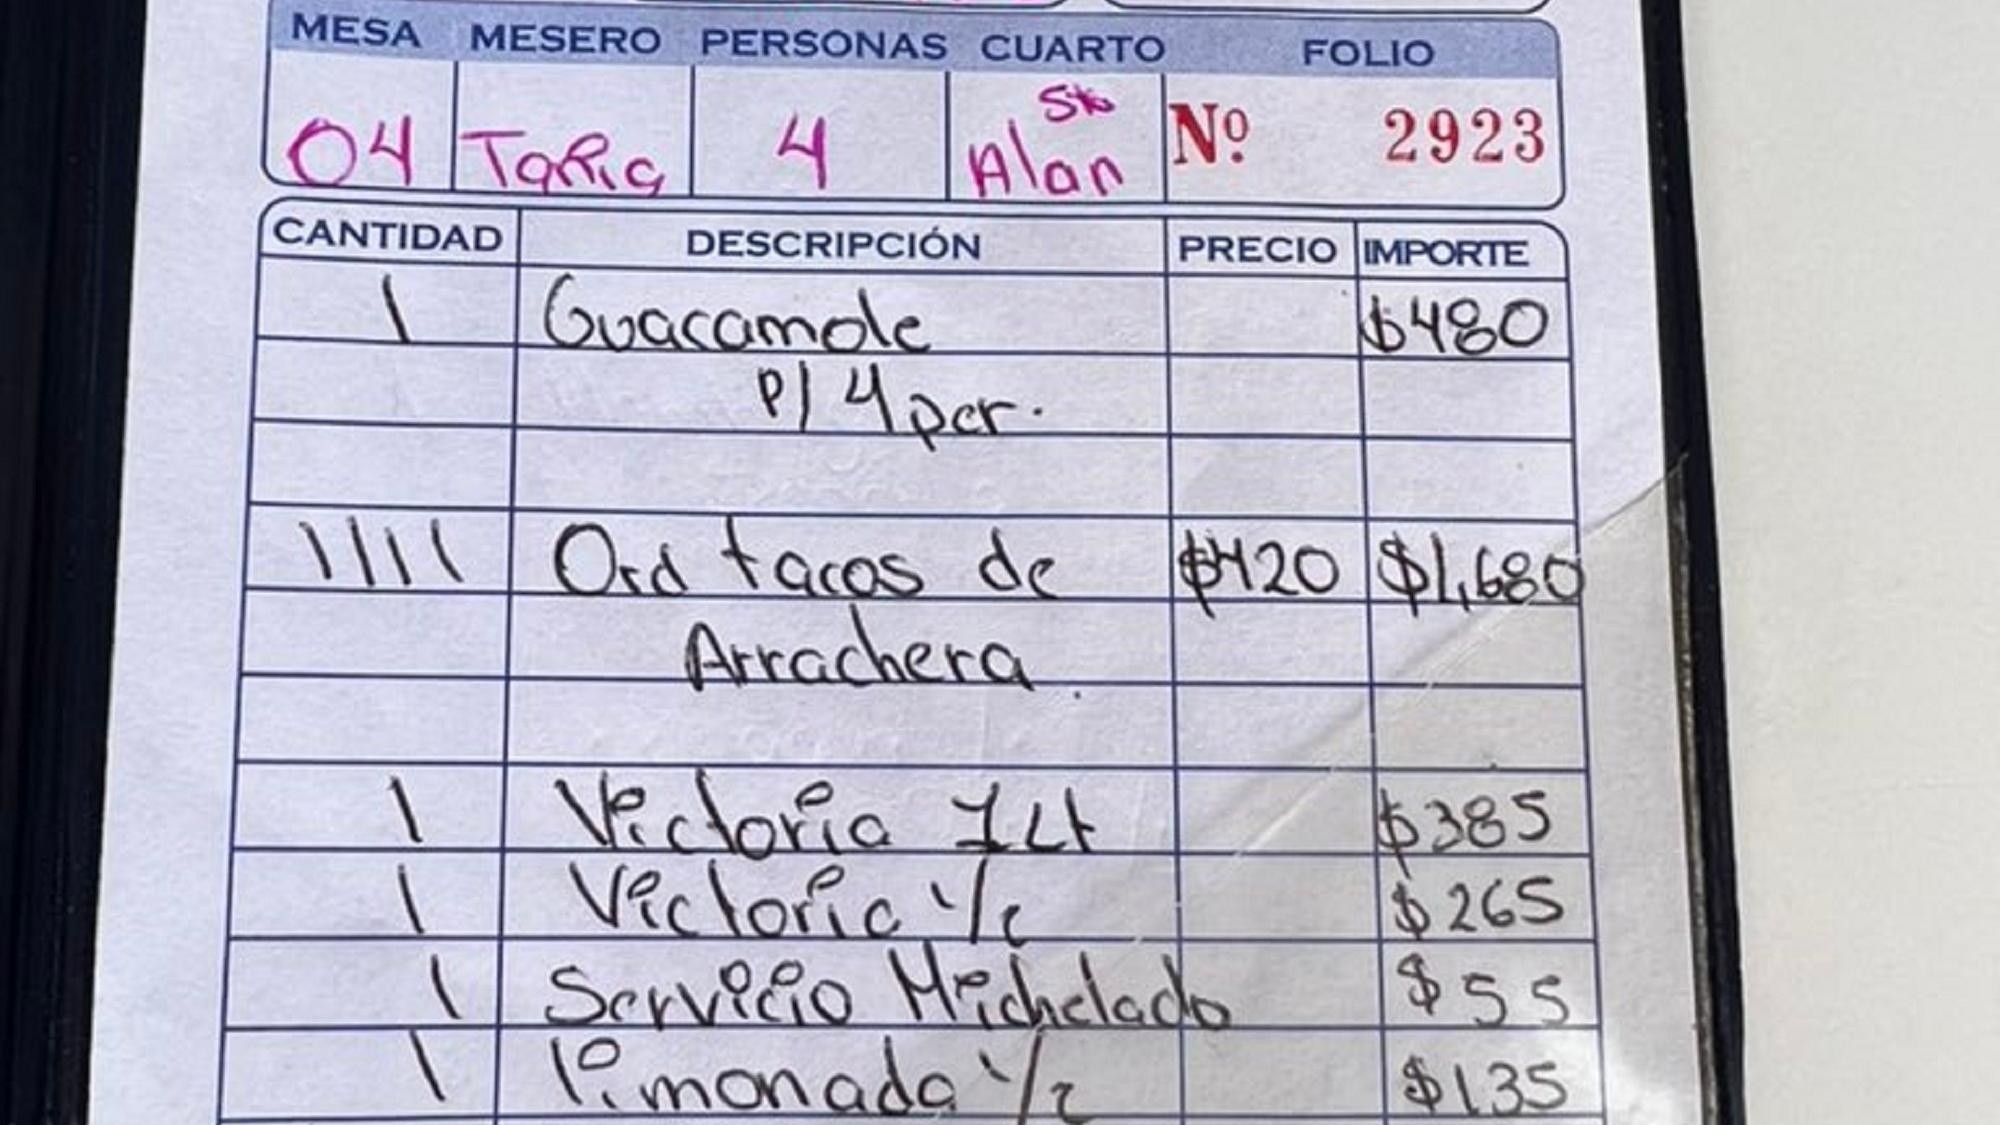 MESA MESERO PERSONAS CUARTO FOLIO
04 4 Alan Nº 2923
CANTIDAD DESCRIPCIÓN PRECIO IMPORTE
1 Guacamole $480
P/ 4 per.
1111 Ord tacos de $420 $1,680
Arrachera
1 Victoria 1Lt $385
1 Victoria 1/2 $265
1 Servicio Michelado $55
1 limonada 1/2 $135